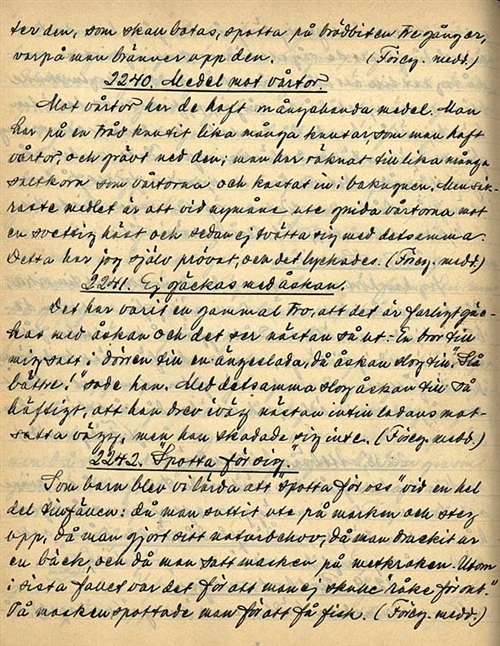 ter den, som skall botas, spotta på brödbiten tre gånger,
varpå man bränner upp den. (Föreg. medd.)
2240. Medel mot vårtor.
Mot vårtor har de haft mångahanda medel. Man
har på en tråd knutit lika många knutar, som man haft
vårtor, och grävt ned den; man har räknat till lika många
saltkorn som vårtorna och kastat in i bakugnen. Men säk-
raste medlet är att vid nymåne ute gnida vårtorna mot
en svettig häst och sedan ej tvätta sig med detsamma.
Detta har jag själv prövat, och det lyckades. (Föreg. medd.)
2241. Ej gäckas med åskan.
Det har varit en gammal tro, att det är farligt gäc-
kas med åskan och det ser nästan så ut: En bror till
mig satt i dörren till en ängslada, då åskan slog till. "Slå
bättre!" sade han. Med detsamma slog åskan till så
häftigt, att han drev iväg nästan intill ladans mot-
satta vägg, men han skadade sig inte. (Föreg. medd.)
2242. "Spotta för sig."
Som barn blev vi lärda att "spotta för oss" vid en hel
del tillfällen: då man suttit ute på marken och steg
upp, då man gjort sitt naturbehov, då man druckit ur
en bäck, och då man satt masken på metkroken. Utom
i sista fallet var det för att man ej skulle "råke för ont."
På masken spottade man för att få fisk. (Föreg. medd.)